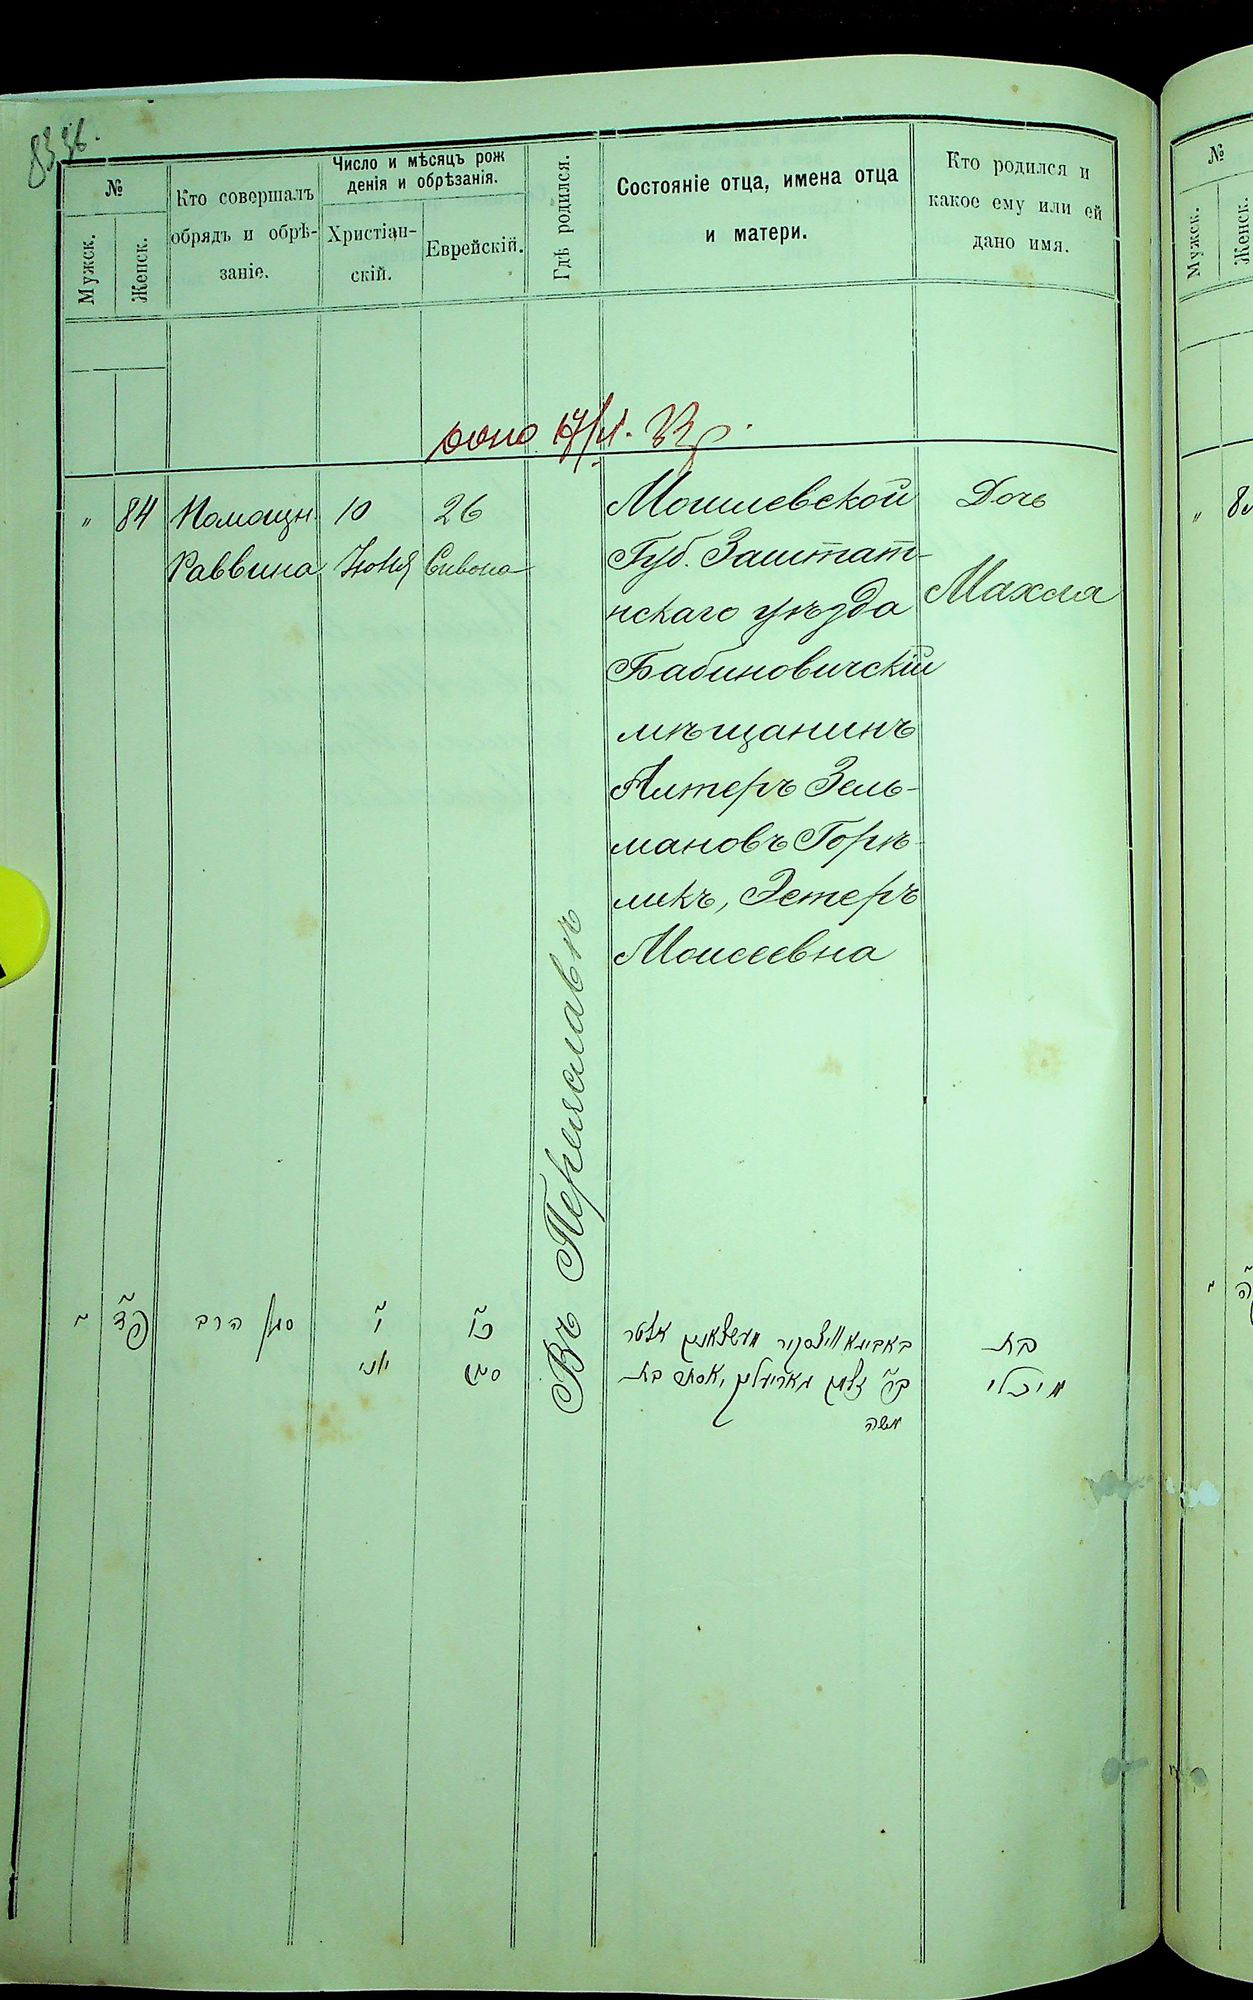 №
Мужск.
Женск.
Кто совершалъ
обрядъ и обрѣ-
заніе.
Число и мѣсяцъ рож
денія и обрѣзанія.
Христіан-
скій.
Еврейскій.
Гдѣ родился.
Состояніе отца, имена отца
и матери.
Кто родился и
какое ему или ей
дано имя.
"
84
Помощн.
Раввина
10
Іюня
26
Сивона
Въ Переяславѣ
Могилевской
Губ. Заштат-
нскаго уѣзда
Бабиновичскій
мѣщанинъ
Алтеръ Зель-
мановъ Горѣ-
ликъ, Эстеръ
Моисеевна
Дочь
Махля
פ״ד
הרב
י״
יוני
כ״ו
סיון
בת
משה
בת
№
Мужск.
Женск.